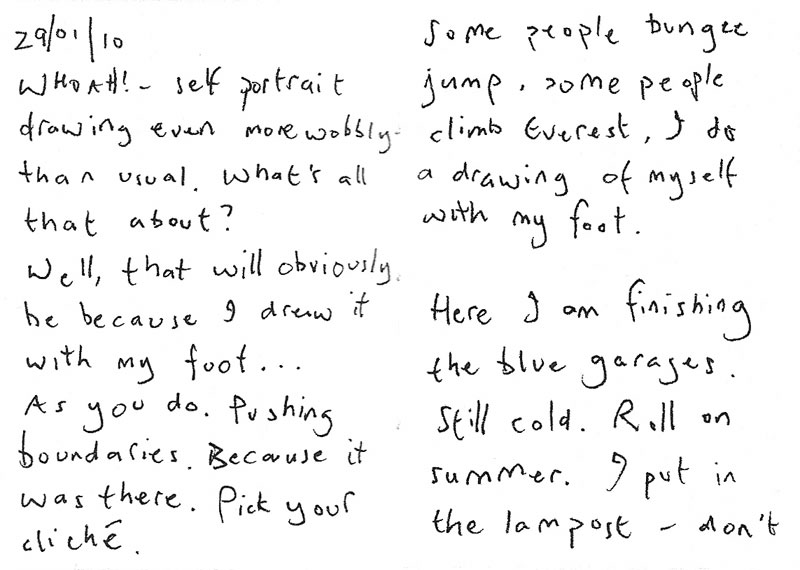 29/01/10
WHOAH! - self portrait
drawing even more wobbly
than usual. What's all
that about?
Well, that will obviously
be because I drew it
with my foot...
As you do. Pushing
boundaries. Because it
was there. Pick your
cliché.
Some people bungee
jump, some people
climb Everest, I do
a drawing of myself
with my foot.
Here I am finishing
the blue garages.
Still cold. Roll on
summer. I put in
the lampost - don't